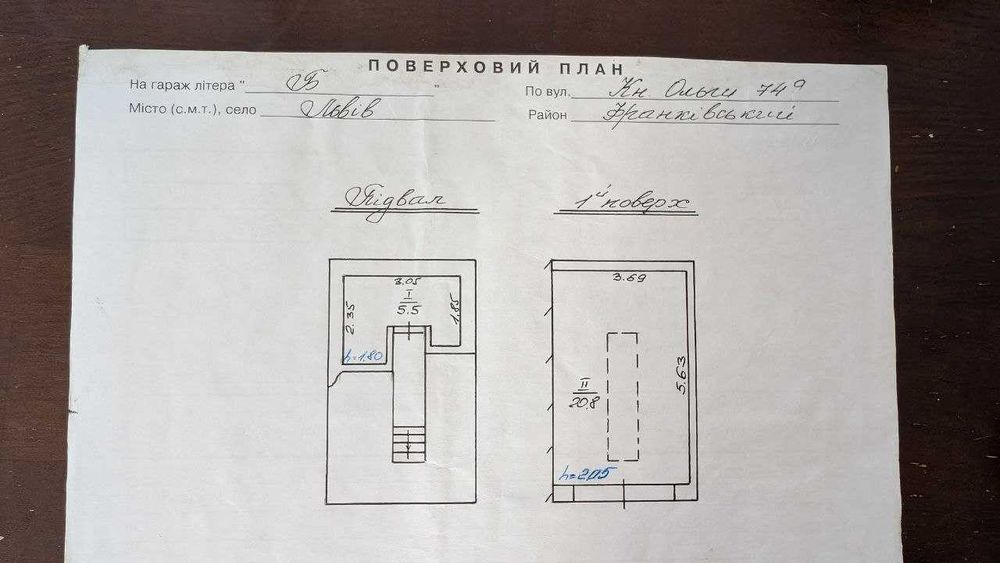 ПОВЕРХОВИЙ ПЛАН
На гараж літера " Б "
По вул. Кн Ольги 74а
Місто (с.м.т.), село Львів
Район Франківський
Підвал
1й поверх
3.05
I
5.5
2.35
1.85
h=1.80
3.69
5.63
II
20.8
h=2.05